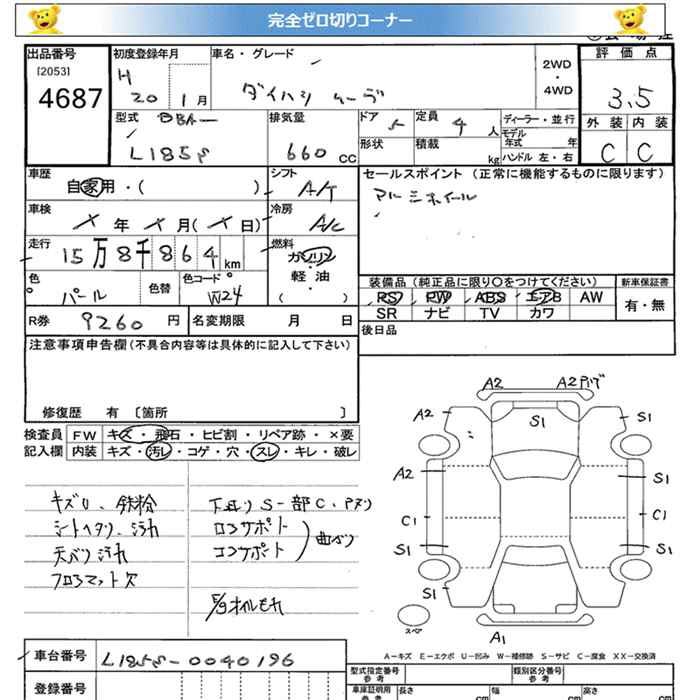 完全ゼロ切りコーナー
出品番号 初度登録年月 車名・グレード 2WD・4WD 評価点
[2053]
4687
H 20 1月 ダイハツ ムーヴ 3.5
型式 DBA- 排気量 ドア 5 定員 4人 ディーラー・並行 外装 内装
L185S 660cc 形状 積載 kg モデル年式 年 C C
ハンドル 左・右
車歴 自家用・( ) シフト A/T セールスポイント (正常に機能するものに限ります)
アルミホイール
車検 年 月( 日) 冷房 A/C
走行 15万8千864km 燃料 ガソリン・軽油 ( )
色 パール 色替 色コード W24
装備品(純正品に限り○をつけてください) 新車保証書
PS PW ABS エアB AW 有・無
SR ナビ TV カワ
R券 9260円 名変期限 月 日 後日品
注意事項申告欄(不具合内容等は具体的に記入して下さい)
修復歴 有 〔箇所 〕
検査員 FW キズ・飛石・ヒビ割・リペア跡・×要
記入欄 内装 キズ・汚レ・コゲ・穴・スレ・キレ・破レ
キズU、鉄粉
シートヘタリ、汚れ
天バリ汚れ
フロアマット欠
下廻りS一部C、
ロアサポート
コアサポート
曲がり
E/gオイルモレ
A2 A2
A2 S1 S1
A2 S1
C1 C1
S1 S1
S1
スペア
A1
A-キズ E-エクボ U-凹み W-補修跡 S-サビ C-腐食 XX-交換済
車台番号 L185S-0040196
型式指定番号 参考 類別区分番号 参考
登録番号
車庫証明用 参考 長さ cm 幅 cm 高さ cm